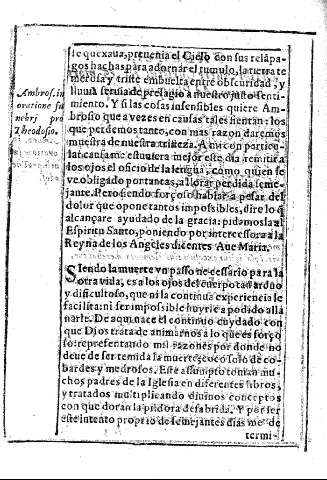 se quexaua, preuenia el Cielo con sus relápa-
gos hachas para adornar el tumulo, la tierra te
merosa y triste embuelta entre obscuridad, y
lluuia seruia de presagio a nuestro justo senti-
miento. Y si las cosas insensibles quiere Am-
brosio que a vezes en causas tales sientan: los
que perdemos tanto, con mas razon daremos
muestra de nuestra tristeza. A mi en particu-
lar cansame estuuiera mejor este dia remitir a
los ojos el oficio de la lengua, como quien se
ve obligado por tantas, a llorar perdida seme-
jante. Pero siendo forçoso hablar a pesar del
dolor que opone tantos impossibles, dire lo q
alcançare ayudado de la gracia: pidamosla al
Espiritu Santo, poniendo por intercessora a la
Reyna de los Angeles dizentes Aue Maria.
Ambros. in
oratione fu
nebri pro
Theodosio.
SIendo la muerte vn passo necessario para la
otra vida, es a los ojos del cuerpo tan arduo
y dificultoso, que ni la continua experiencia le
facilita: ni ser impossible huyrle a podido alla
narle. De aqui nace el continuo cuydado con
que Dios trata de animarnos a lo que es forço
so: representando mil razones por donde no
deue de ser temida la muerte; coco solo de co-
bardes y medrosos. Este assumpto toman mu-
chos padres de la Iglesia en diferentes libros,
y tratados multiplicando diuinos conceptos
con que doran la pildora desabrida. Y por ser
este intento proprio de semejantes dias me de
termi-